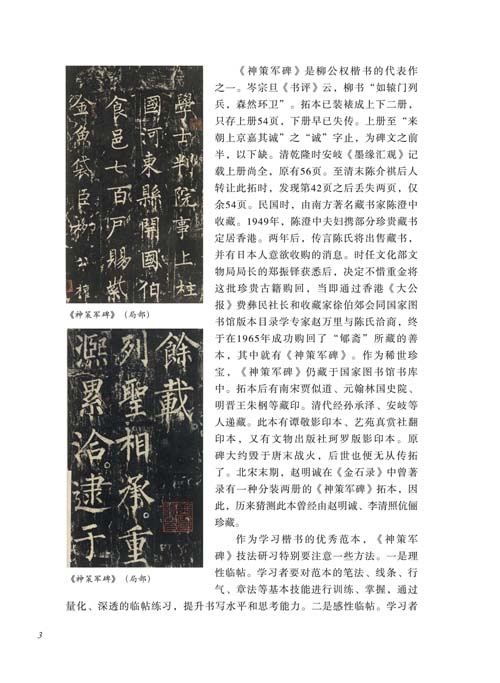 學士判院事上柱
國河東縣開國伯
食邑七百戶賜紫
金魚袋臣柳公權
《神策军碑》（局部）
餘載
列聖相承重
熙累洽逮于
《神策军碑》（局部）
《神策军碑》是柳公权楷书的代表作
之一。岑宗旦《书评》云，柳书“如辕门列
兵，森然环卫”。拓本已装裱成上下二册，
只存上册54页，下册早已失传。上册至“来
朝上京嘉其诚”之“诚”字止，为碑文之前
半，以下缺。清乾隆时安岐《墨缘汇观》记
载上册尚全，原有56页。至清末陈介祺后人
转让此拓时，发现第42页之后丢失两页，仅
余54页。民国时，由南方著名藏书家陈澄中
收藏。1949年，陈澄中夫妇携部分珍贵藏书
定居香港。两年后，传言陈氏将出售藏书，
并有日本人意欲收购的消息。时任文化部文
物局局长的郑振铎获悉后，决定不惜重金将
这批珍贵古籍购回，当即通过香港《大公
报》费彝民社长和收藏家徐伯郊会同国家图
书馆版本目录学专家赵万里与陈氏洽商，终
于在1965年成功购回了“郇斋”所藏的善
本，其中就有《神策军碑》。作为稀世珍
宝，《神策军碑》仍藏于国家图书馆书库
中。拓本后有南宋贾似道、元翰林国史院、
明晋王朱棡等藏印。清代经孙承泽、安岐等
人递藏。此本有谭敬影印本、艺苑真赏社翻
印本，又有文物出版社珂罗版影印本。原
碑大约毁于唐末战火，后世也便无从传拓
了。北宋末期，赵明诚在《金石录》中曾著
录有一种分装两册的《神策军碑》拓本，因
此，历来猜测此本曾经由赵明诚、李清照伉俪
珍藏。
作为学习楷书的优秀范本，《神策军
碑》技法研习特别要注意一些方法。一是理
性临帖。学习者要对范本的笔法、线条、行
气、章法等基本技能进行训练、掌握，通过
量化、深透的临帖练习，提升书写水平和思考能力。二是感性临帖。学习者
3